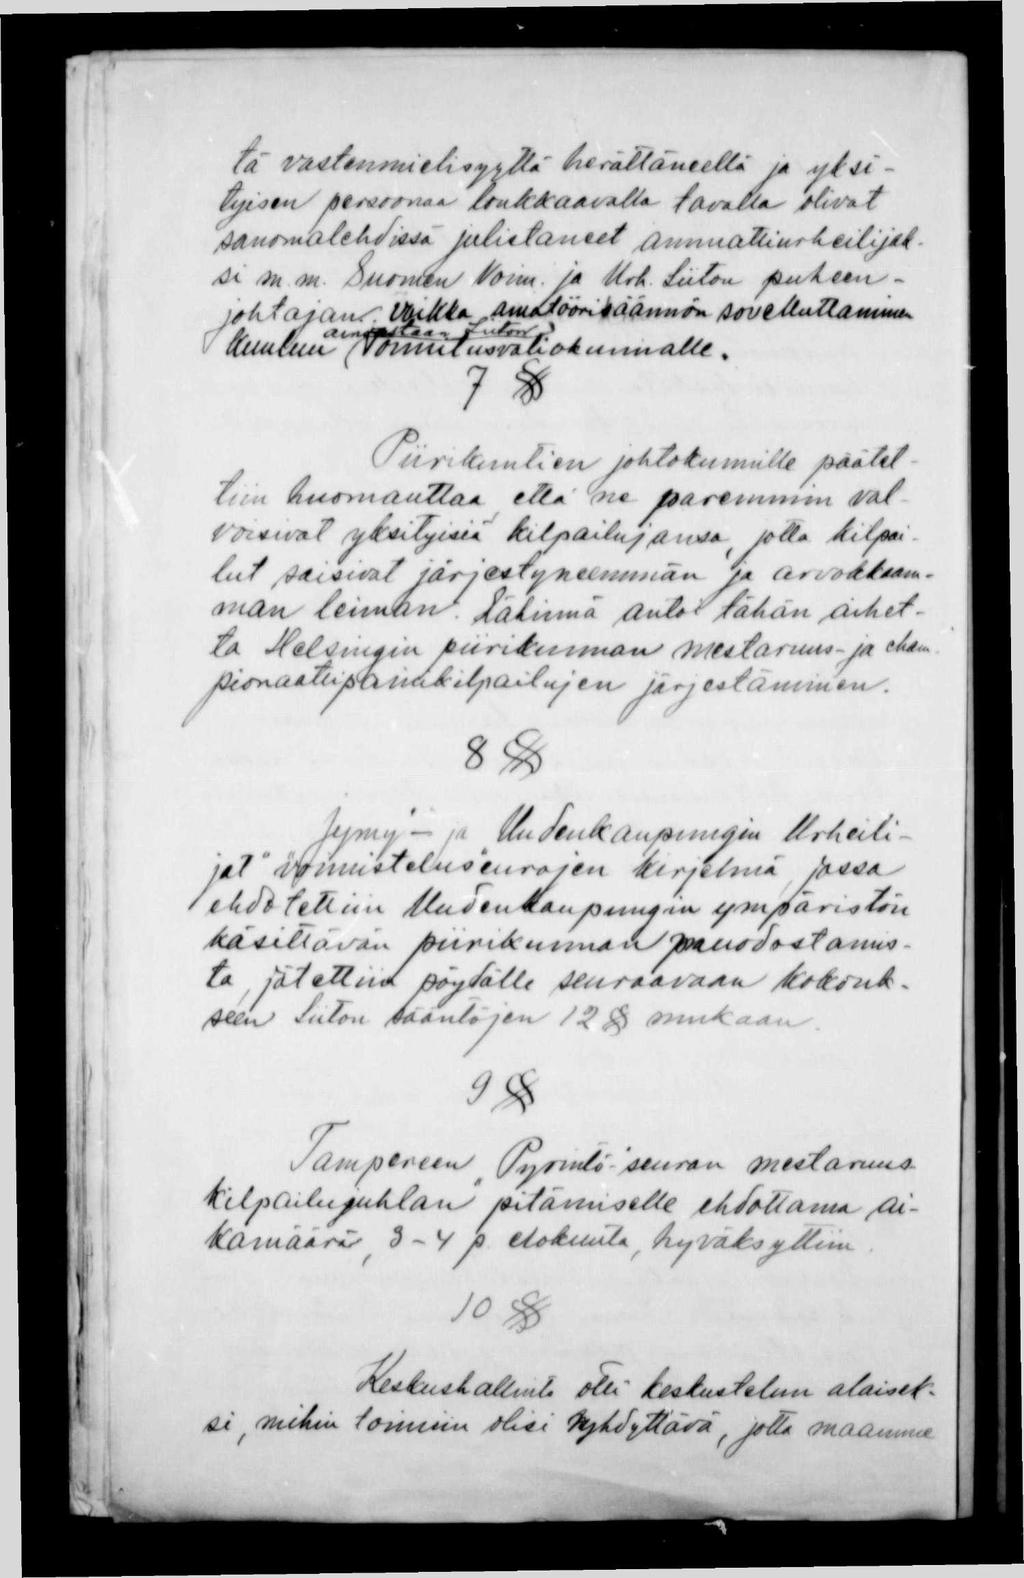 tä vastenmielisyyttä herättäneellä ja yksi-
tyisen persoonaa loukkaavalla tavalla olivat
sanomalehdissä julistaneet ammattiurheilijak-
si m. m. Suomen Voim. ja Urh. Liiton puheen-
johtajan. Vaikka amatöörisäännön sovelluttaminen
ainoastaan Liiton
kuuluu toimitusvaliokunnalle.
7 §
Piirikuntien johtokunnille päätet-
tiin huomauttaa, että ne paremmin val-
voisivat yksityisiä kilpailujansa, jotta kilpai-
lut saisivat järjestyneemmän ja arvokkaam-
man leiman. Lähinnä antoi tähän aihet-
ta Helsingin piirikunnan mestaruus- ja cham-
pionaattipainikilpailujen järjestäminen.
8 §
Jymy"- ja Uudenkaupungin Urheili-
jat" voimisteluseurojen kirjelmä, jossa
ehdotettiin Uudenkaupungin ympäristön
käsittävän piirikunnan muodostamis-
ta, jätettiin pöydälle seuraavaan kokouk-
seen Liiton sääntöjen 12 § mukaan.
9 §
Tampereen „Pyrintö"-seuran mestaruus-
kilpailujuhlan pitämiselle ehdottama ai-
kamäärä, 3-4 p. elokuuta, hyväksyttiin.
10 §
Keskushallinto otti keskustelun alaisek-
si, mihin toimiin olisi ryhdyttävä, jotta maamme